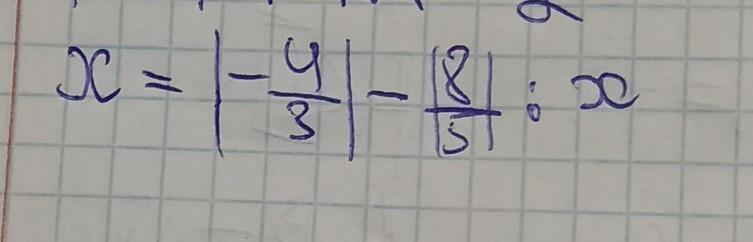 x = |-4/3| - |8/5| : x